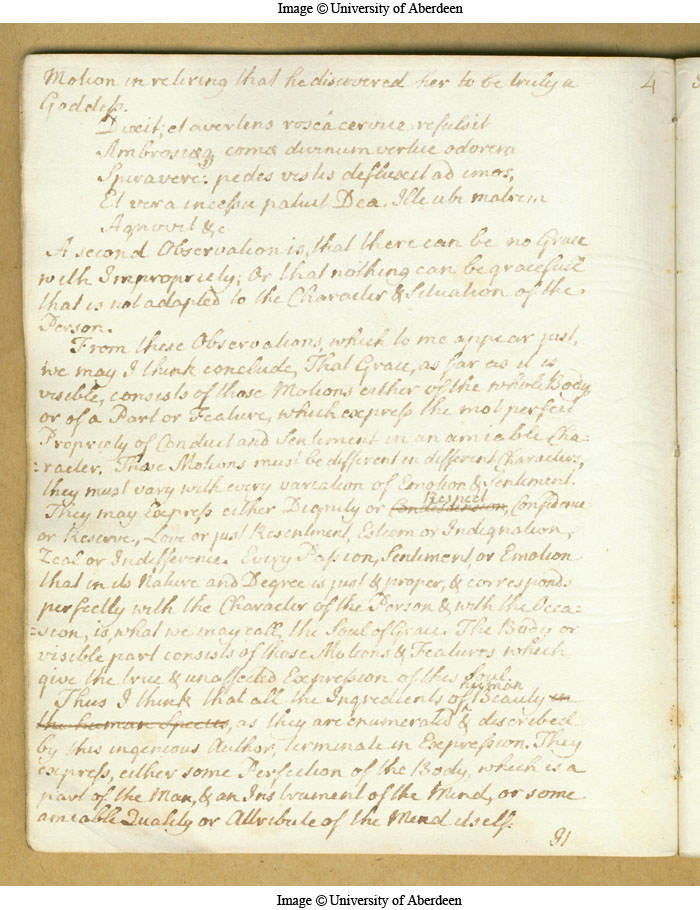 Image © University of Aberdeen
4
Motion in retiring that he discovered her to be truly a
Goddess.
Dixit; et avertens roseâ cervice refulsit
Ambrosiæq comæ divinum vertice odorem
Spiravere: pedes vestis defluxit ad imos,
Et vera incessu patuit Dea. Ille ubi matrem
Agnovit &c
A second Observation is, that there can be no Grace
with Impropriety; Or that nothing can be gracefull
that is not adapted to the Character & Situation of the
Person.
From these Observations, which to me appear just,
we may I think conclude, That Grace, as far as it is
visible, consists of those Motions either of the whole Body
or of a Part or Feature, which express the most perfect
Propriety of Conduct and Sentiment in an amiable Cha=
=racter. Those Motions must be different in different Characters,
they must vary with every variation of Emotion & Sentiment.
They may Express either Dignity or Respect, Confidence
or Reserve, Love or just Resentment, Esteem or Indignation,
Zeal or Indifference. Every Passion, Sentiment, or Emotion
that in its Nature and Degree is just & proper, & corresponds
perfectly with the Character of the Person & with the Occa=
=sion, is, what we may call, the Soul of Grace. The Body or
visible part consists of those Motions & Features which
give the true & unaffected Expression of this Soul.
Thus I think that all the Ingredients of human Beauty in
the human Species, as they are enumerated & described
by this ingenious Author, terminate in Expression. They
express, either some Perfection of the Body, which is a
part of the Man, & an Instrument of the Mind, or some
amiable Quality or Attribute of the Mind itself.
Image © University of Aberdeen